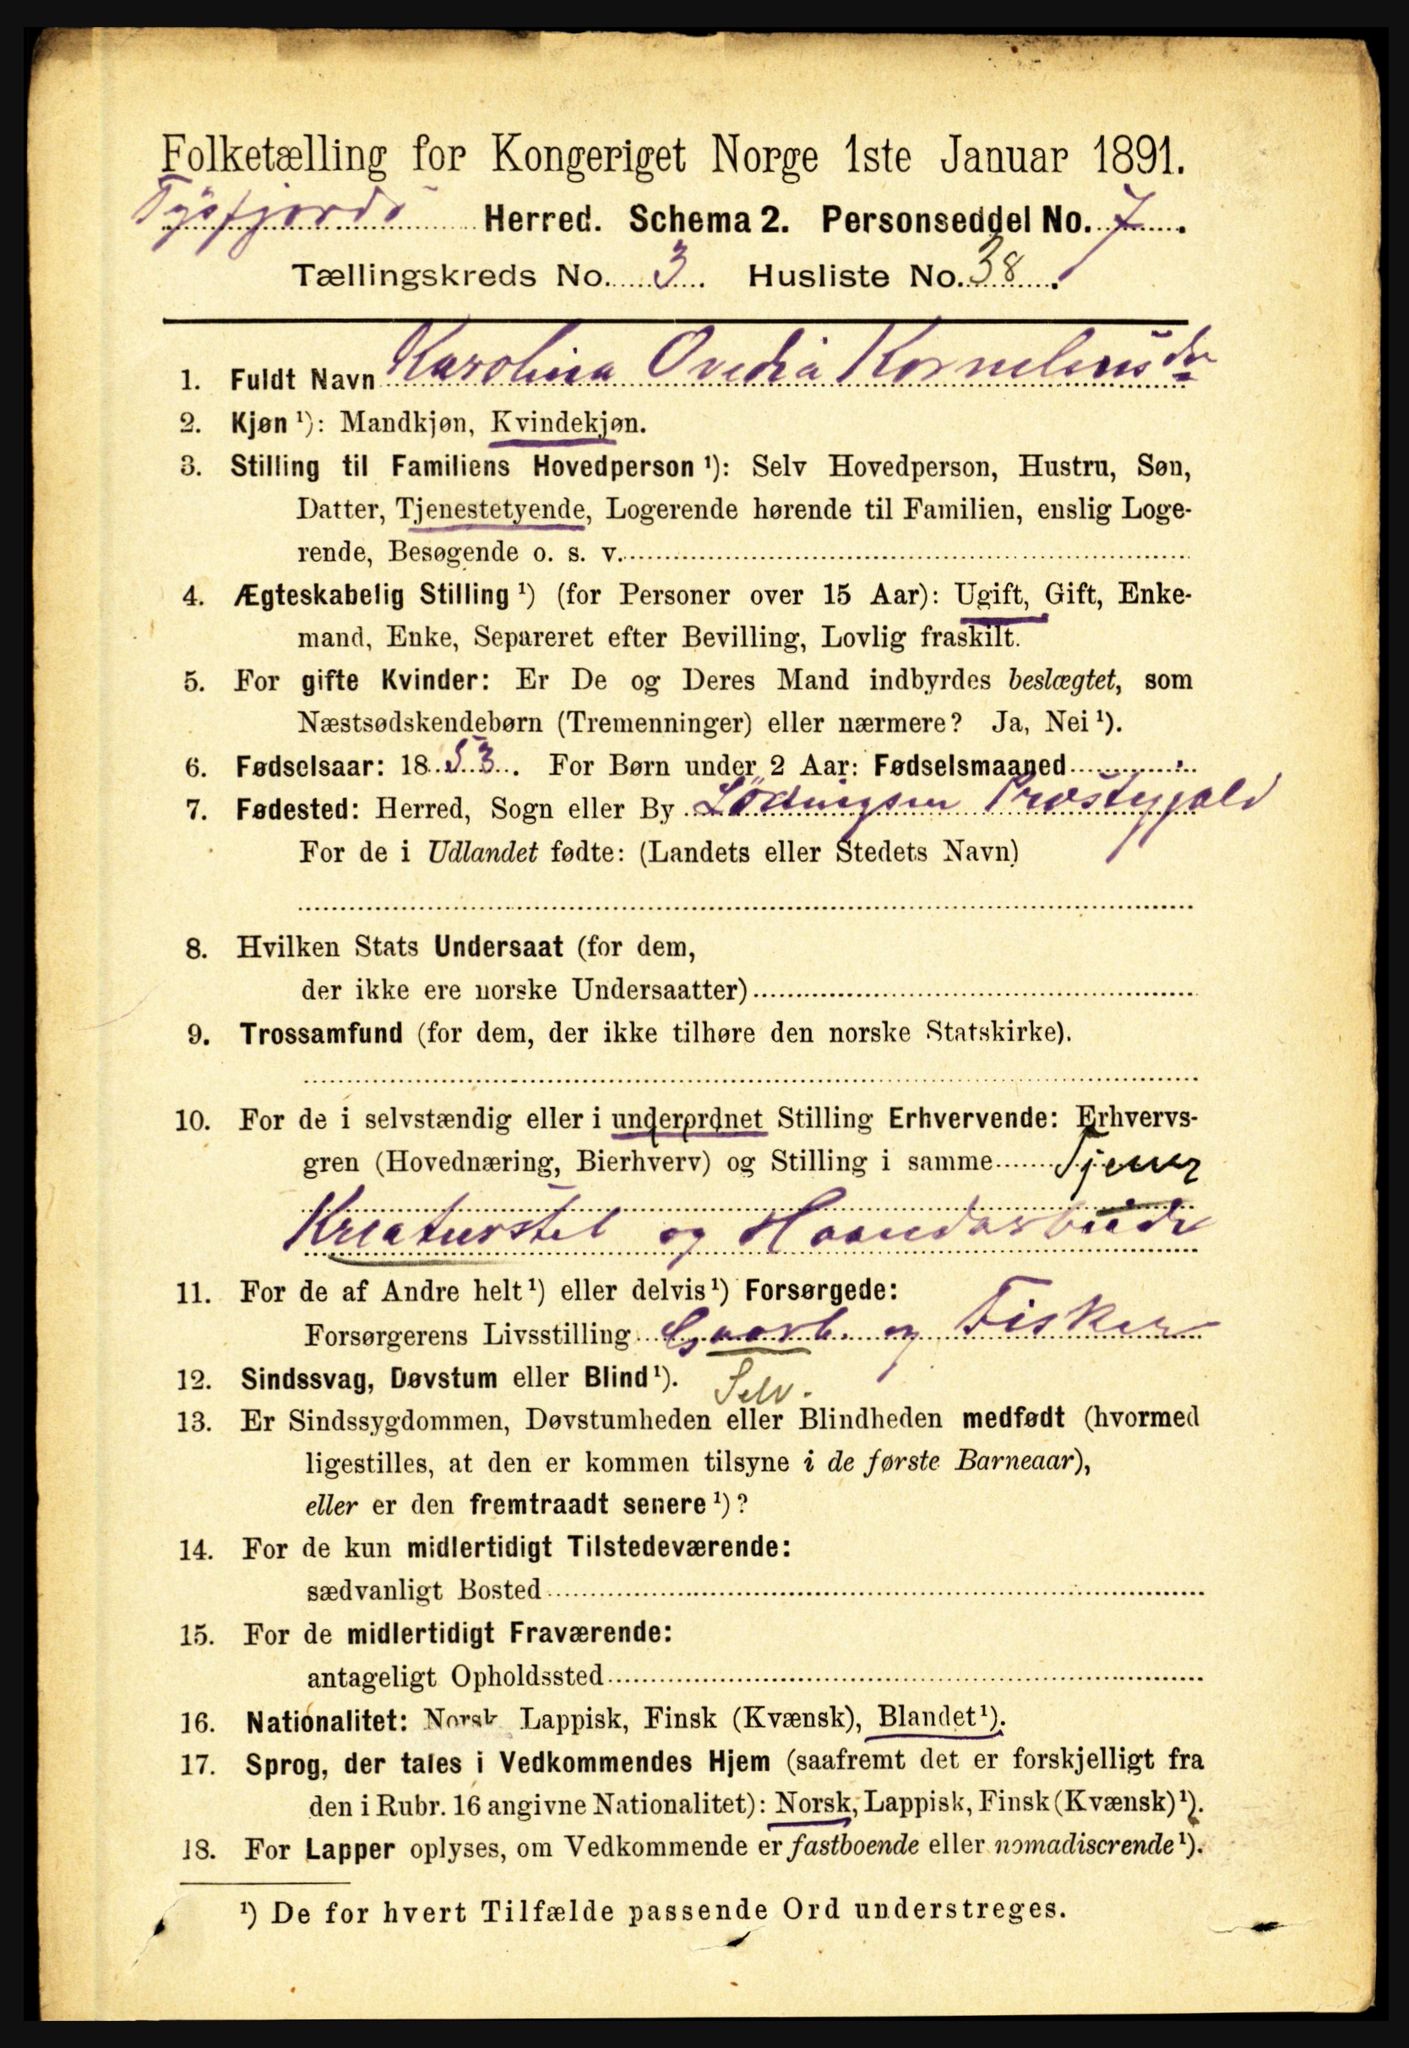 Folketælling for Kongeriget Norge 1ste Januar 1891.
Tysfjords Herred. Schema 2. Personseddel No. 7.
Tællingskreds No. 3. Husliste No. 38.
1. Fuldt Navn Karolina Ovedia Korneliusdr
2. Kjøn ¹): Mandkjøn, Kvindekjøn.
3. Stilling til Familiens Hovedperson ¹): Selv Hovedperson, Hustru, Søn,
Datter, Tjenestetyende, Logerende hørende til Familien, enslig Loge-
rende, Besøgende o. s. v.
4. Ægteskabelig Stilling ¹) (for Personer over 15 Aar): Ugift, Gift, Enke-
mand, Enke, Separeret efter Bevilling, Lovlig fraskilt.
5. For gifte Kvinder: Er De og Deres Mand indbyrdes beslægtet, som
Næstsødskendebørn (Tremenninger) eller nærmere? Ja, Nei ¹).
6. Fødselsaar: 1853. For Børn under 2 Aar: Fødselsmaaned
7. Fødested: Herred, Sogn eller By Lödingsen Præstegjeld
For de i Udlandet fødte: (Landets eller Stedets Navn)
8. Hvilken Stats Undersaat (for dem,
der ikke ere norske Undersaatter)
9. Trossamfund (for dem, der ikke tilhøre den norske Statskirke).
10. For de i selvstændig eller i underordnet Stilling Erhvervende: Erhvervs-
gren (Hovednæring, Bierhverv) og Stilling i samme Tjener
Kreaturstel og Haandarbeide
11. For de af Andre helt ¹) eller delvis ¹) Forsørgede:
Forsørgerens Livsstilling Gaarb. og Fisker
12. Sindssvag, Døvstum eller Blind ¹). Selv.
13. Er Sindssygdommen, Døvstumheden eller Blindheden medfødt (hvormed
ligestilles, at den er kommen tilsyne i de første Barneaar),
eller er den fremtraadt senere ¹)?
14. For de kun midlertidigt Tilstedeværende:
sædvanligt Bosted
15. For de midlertidigt Fraværende:
antageligt Opholdssted
16. Nationalitet: Norsk, Lappisk, Finsk (Kvænsk), Blandet ¹).
17. Sprog, der tales i Vedkommendes Hjem (saafremt det er forskjelligt fra
den i Rubr. 16 angivne Nationalitet): Norsk, Lappisk, Finsk (Kvænsk) ¹).
18. For Lapper oplyses, om Vedkommende er fastboende eller nomadiserende ¹).
¹) De for hvert Tilfælde passende Ord understreges.